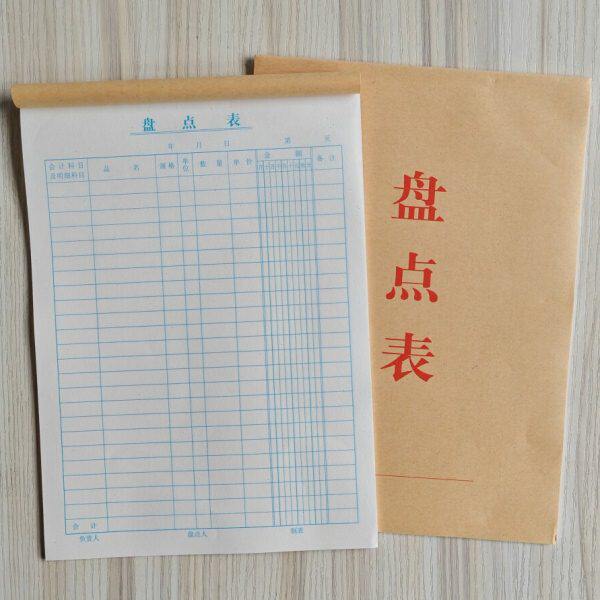 盘 点 表
年 月 日 第 页
会计科目及明细科目 品 名 规格 单位 数量 单价 金 额 备注
合 计
负责人 盘点人 制表
盘
点
表